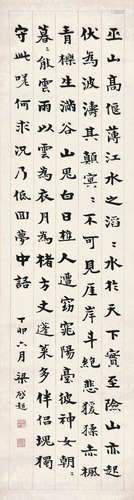 巫山高偃薄江水之滔〻水於天下實至險山亦起
伏為波濤其巔冥〻不可見厓岸斗絕悲猨猱赤楓
青櫟生滿谷山鬼白日樵人遭窈窕陽臺彼神女朝〻
暮〻能雲雨以雲為衣月為褚方丈蓬萊多伴侶塊獨
守此嗟何求況乃低回夢中語
丁卯六月 梁啟超